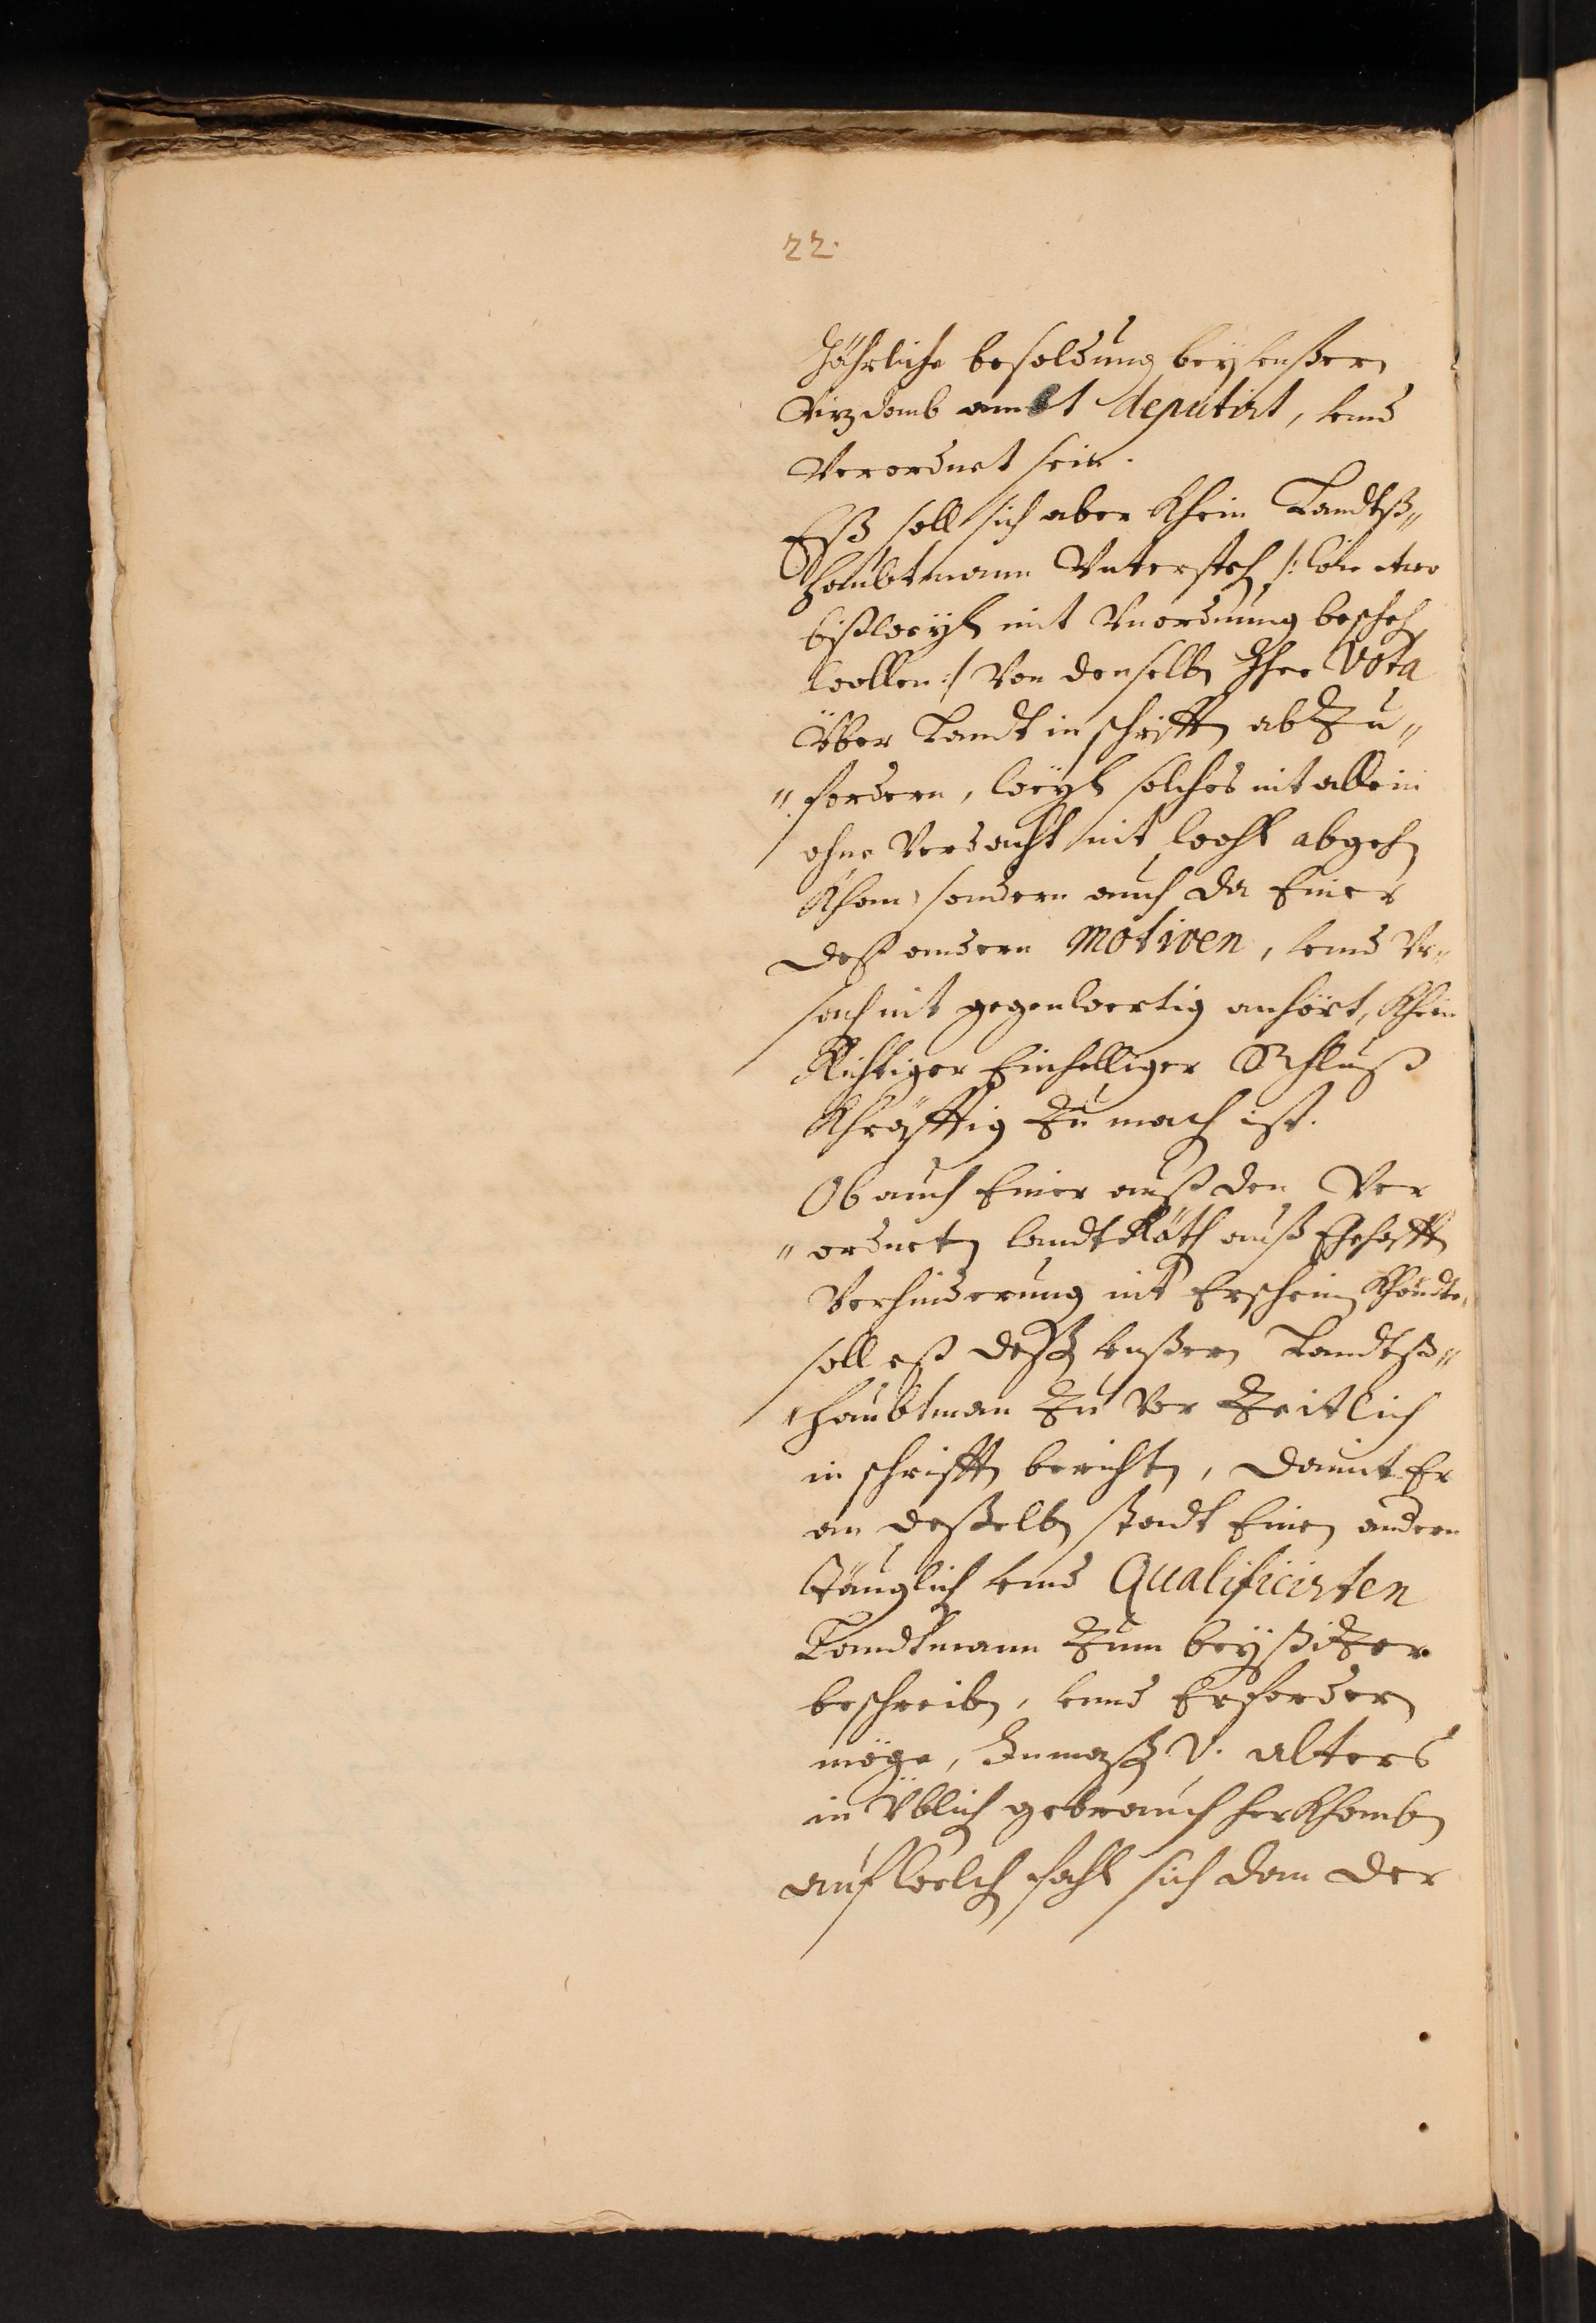 22.
Jährliche besoldung bey unßern
Vizdomb ambt deputirt, unnd
Verordnet sein.
Eß soll sich aber Khein Landtß„
haubtmann Unterstehen /: wie etwo
bißweyln mit Unordnung beschehen
wollen :/ Von denselben Ihre Vota
Über Landt in schrifften abZu„
„fordern, weyln solches nit allein
ohne Verdacht nit wohl abgehen
Khan, sondern auch da Einer
deß andern Motiven, unnd Ur„
sach nit gegenwertig anhört, Khein
Richtiger Einhelliger Schluß
Khräfftig Zu machen ist.
Ob auch Einer auß den Ver
„ordneten landtRäth auß Ehehafften
Verhinderung nit Erscheinen Khöndte,
soll eß dessen unßern Landtß„
haubtman Zu Vor Zeitlich
in schrifften berichten, damit Er
an desselben stadt Einen andern
Tauglich unnd Qualificirten
Landtmann Zum beysiZer
beschreiben, unnd Erfordern
möge, Inmassen V. alters
in Üblich gebrauch herkhomben
auf welchen fahl sich dan der